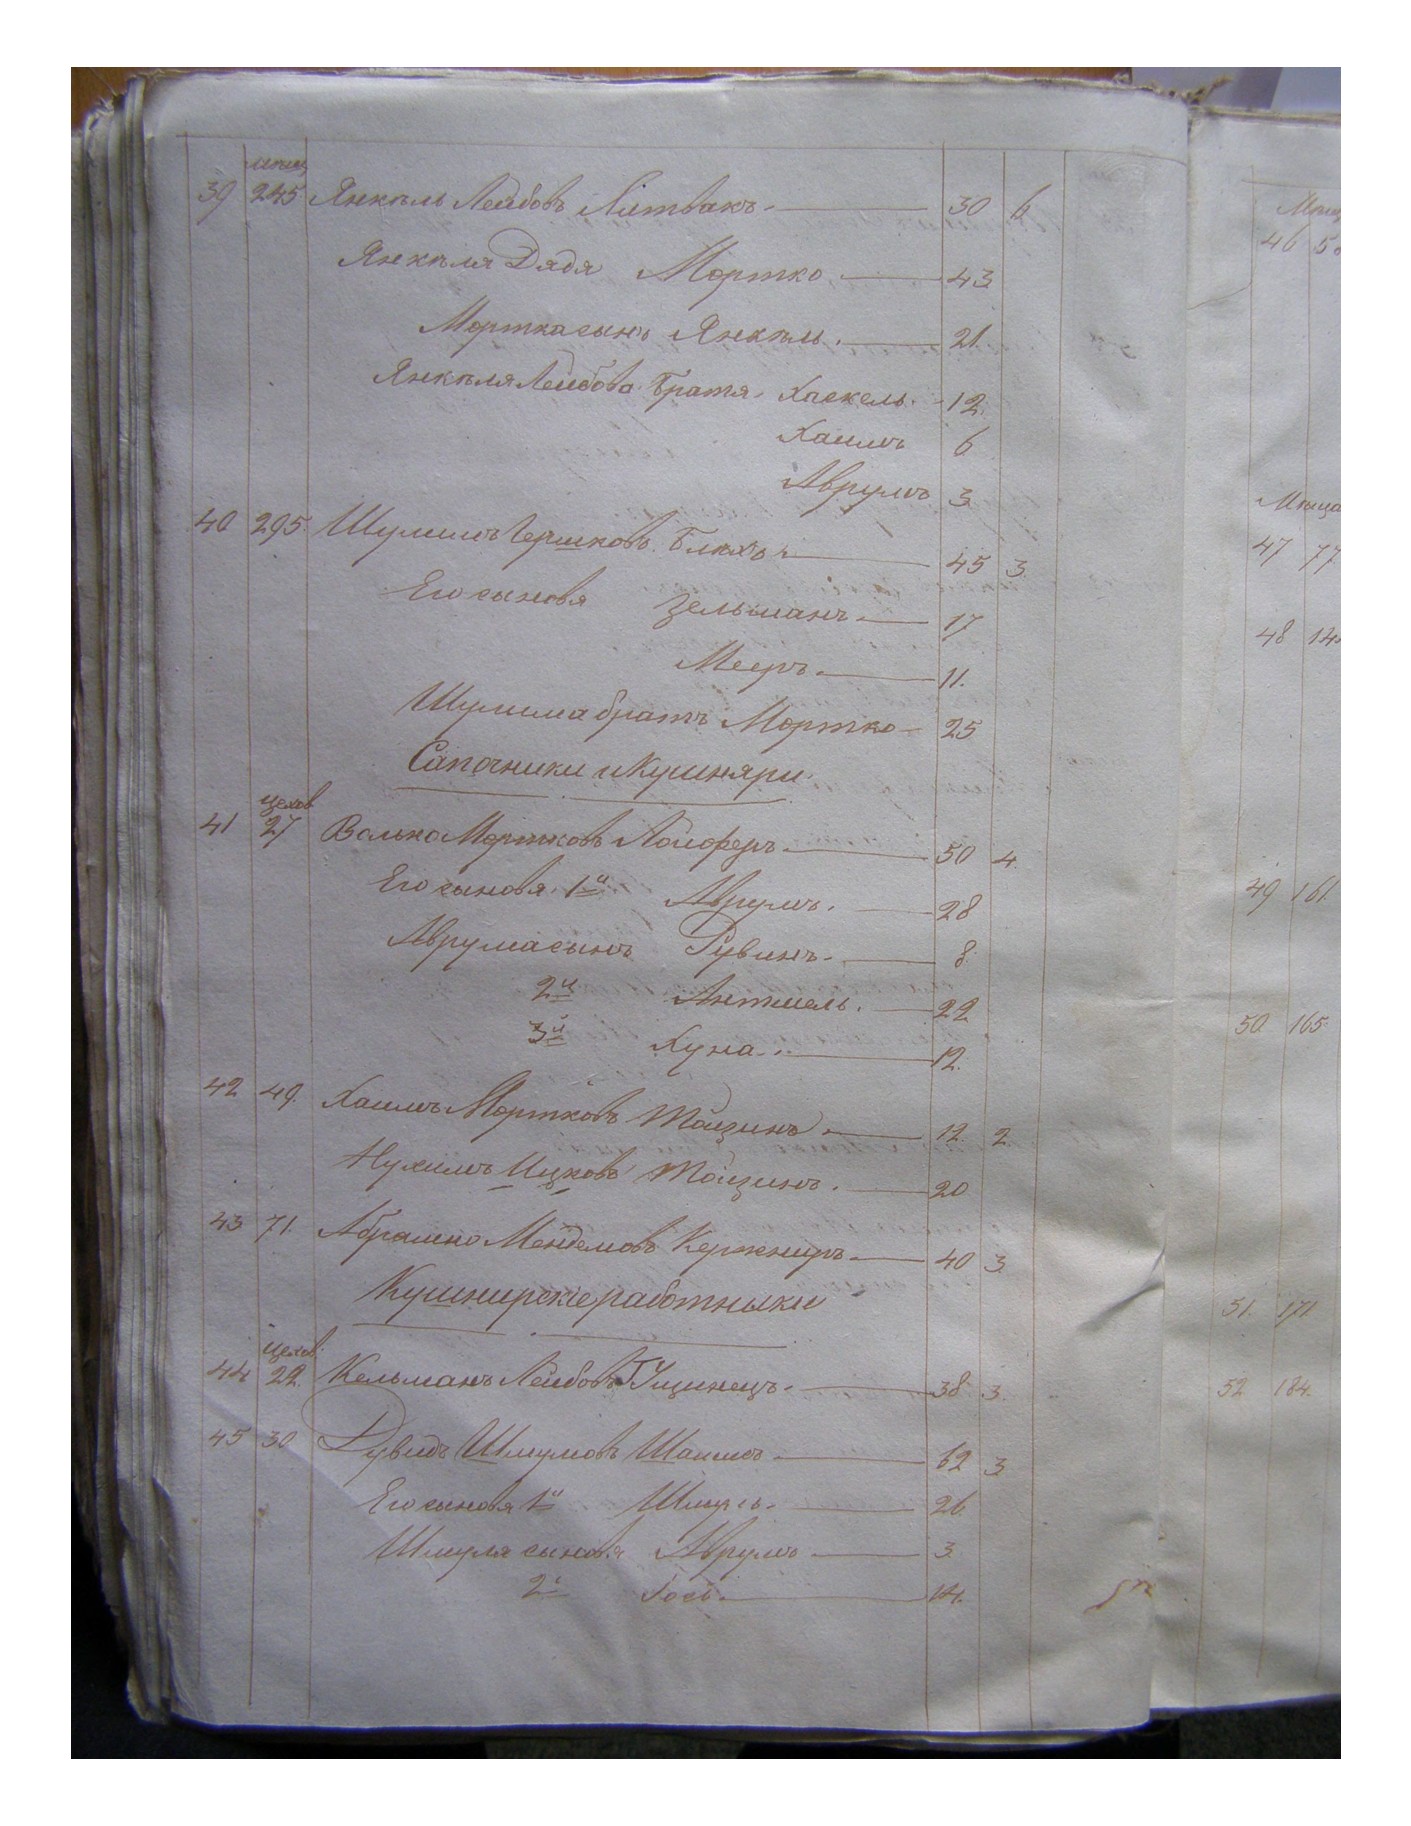 мѣщ
39 245 Янкель Лейбовъ Литвакъ. 30 6
Янкеля Дядя Мортко. 43
Мортка сынъ Янкель. 21.
Янкеля Лейбова Братя. Хаскель. 12.
Хаимъ 6
Аврумъ 3
40 295. Шулимъ Гершковъ Блехъ. 45 3.
Его сыновя Зельманъ. 17
Мееръ. 11.
Шулима братъ Мортко 25
Сапочники и Кушняри.
цехов
41 27 Волько Мортковъ 50 4.
Его сыновя 1й Аврумъ. 28
Аврума сынъ Рувинъ. 8.
2й Антшель. 22
3й Хуна. 12.
42 49. Хаимъ Мортковъ 12. 2.
Нухимъ Ицковъ 20
43 71. Абрамко Менделовъ Кержниръ 40 3.
Кушнирскіе работники
цехов.
44 22. Кельманъ Лейбовъ 38 3.
45 30 Дувидъ Шмулювъ 62 3
Его сыновя 1й Шмуль. 26
Шмуля сыновя Аврумъ 3
2й Іось. 14.
Мѣщ
46
Мѣщан
47 77
48 14
49 161.
50 165.
51. 171
52 184.